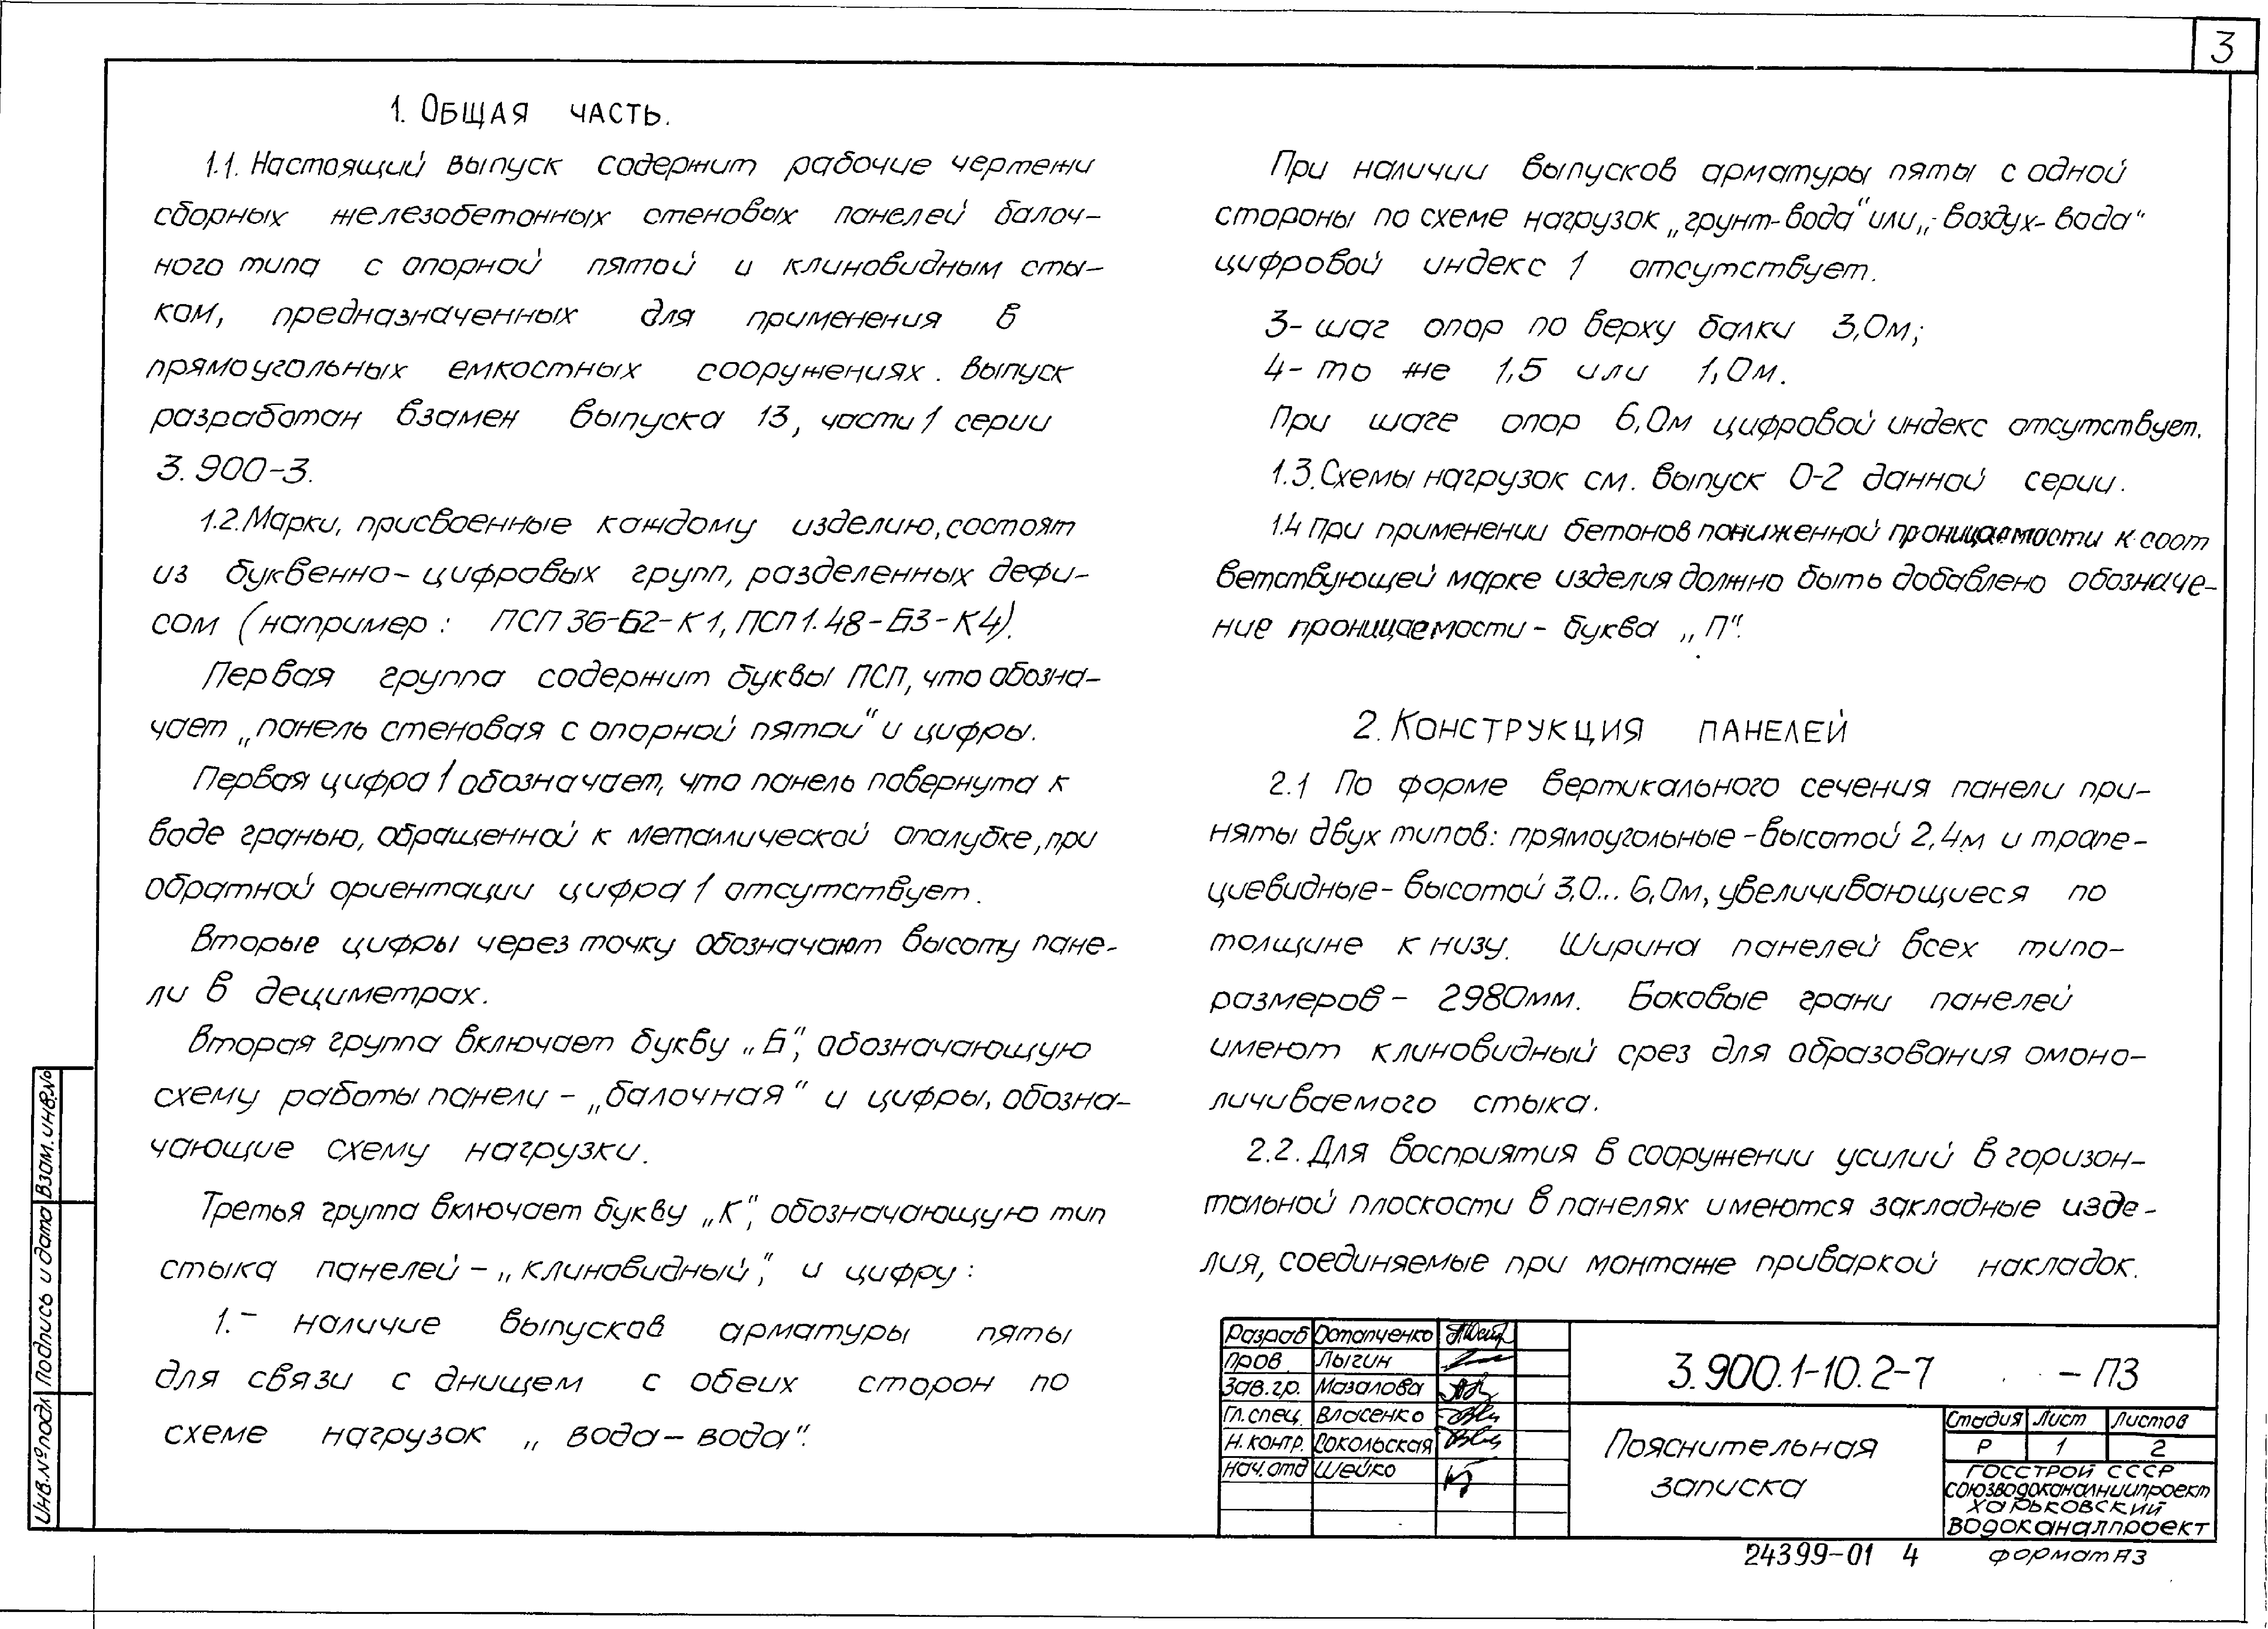 3
1. Общая часть.
1.1. Настоящий выпуск содержит рабочие чертежи
сборных железобетонных стеновых панелей балоч-
ного типа с опорной пятой и клиновидным сты-
ком, предназначенных для применения в
прямоугольных емкостных сооружениях. Выпуск
разработан взамен выпуска 13, части 1 серии
3.900-3.
1.2. Марки, присвоенные каждому изделию, состоят
из буквенно-цифровых групп, разделенных дефи-
сом (например: ПСП 36-Б2-К1, ПСП1.48-Б3-К4).
Первая группа содержит буквы ПСП, что обозна-
чает „панель стеновая с опорной пятой" и цифры.
Первая цифра 1 обозначает, что панель повернута к
воде гранью, обращенной к металлической опалубке, при
обратной ориентации цифра 1 отсутствует.
Вторые цифры через точку обозначают высоту пане-
ли в дециметрах.
Вторая группа включает букву „Б", обозначающую
схему работы панели - „балочная" и цифры, обозна-
чающие схему нагрузки.
Третья группа включает букву „К", обозначающую тип
стыка панелей - „клиновидный", и цифру:
1.- наличие выпусков арматуры пяты
для связи с днищем с обеих сторон по
схеме нагрузок „вода-вода".
При наличии выпусков арматуры пяты с одной
стороны по схеме нагрузок „грунт-вода" или „воздух-вода"
цифровой индекс 1 отсутствует.
3- шаг опор по верху балки 3,0м;
4- то же 1,5 или 1,0м.
При шаге опор 6,0м цифровой индекс отсутствует.
1.3. Схемы нагрузок см. выпуск 0-2 данной серии.
1.4 При применении бетонов пониженной проницаемости к соот
ветствующей марке изделия должно быть добавлено обозначе-
ние проницаемости - буква „П".
2. Конструкция панелей
2.1 По форме вертикального сечения панели при-
няты двух типов: прямоугольные - высотой 2,4м и трапе-
циевидные - высотой 3,0... 6,0м, увеличивающиеся по
толщине к низу. Ширина панелей всех типо-
размеров - 2980мм. Боковые грани панелей
имеют клиновидный срез для образования омоно-
личиваемого стыка.
2.2. Для восприятия в сооружении усилий в горизон-
тальной плоскости в панелях имеются закладные изде-
лия, соединяемые при монтаже приваркой накладок.
Инв.№подл Подпись и дата Взам.инв.№
Разраб Остапченко
Пров. Лыгин
Зав.гр. Мазалова
Гл.спец. Власенко
Н.контр. Сокольская
Нач.отд Шейко
3.900.1-10.2-7 - ПЗ
Пояснительная
записка
Стадия Лист Листов
Р 1 2
ГОССТРОЙ СССР
СОЮЗВОДОКАНАЛНИИПРОЕКТ
ХАРЬКОВСКИЙ
ВОДОКАНАЛПРОЕКТ
24399-01 4 формат А3